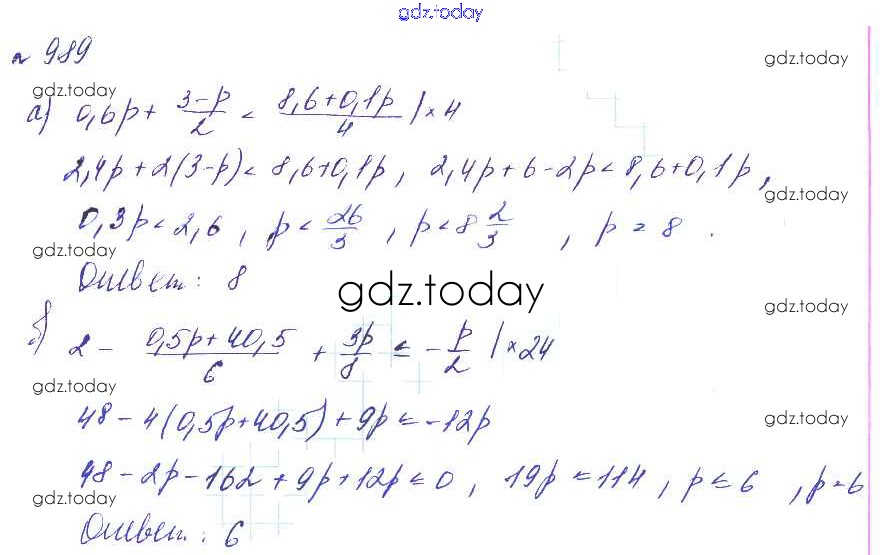 gdz.today
№ 989
gdz.today
gdz.today
а) 0,6p + (3-p)/2 < (8,6+0,1p)/4 | × 4
2,4p + 2(3-p) < 8,6+0,1p, 2,4p+6-2p < 8,6+0,1p,
gdz.today
0,3p < 2,6, p < 26/3, p < 8 2/3, p = 8.
gdz.today
Ответ: 8
gdz.today
gdz.today
б) 2 - (0,5p+40,5)/6 + 3p/8 ≤ -p/2 | × 24
gdz.today
48 - 4(0,5p+40,5) + 9p ≤ -12p
gdz.today
48 - 2p - 162 + 9p + 12p ≤ 0, 19p ≤ 114, p ≤ 6, p = 6
gdz.today
gdz.today
Ответ: 6